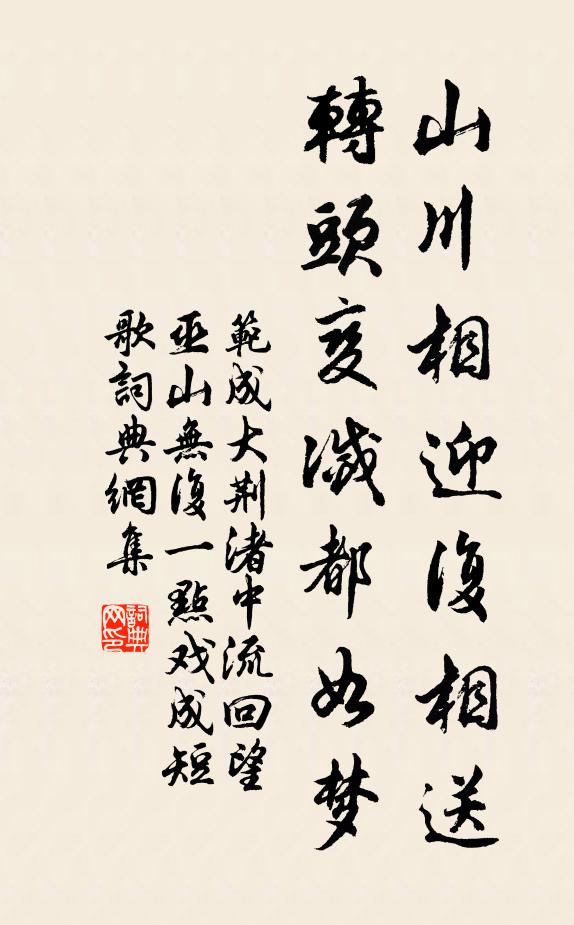 山川相迎復相送
轉頭变滅都如梦
範成大荆渚中流回望
巫山無復一點戏成短
歌詞典網集
詞典
网印